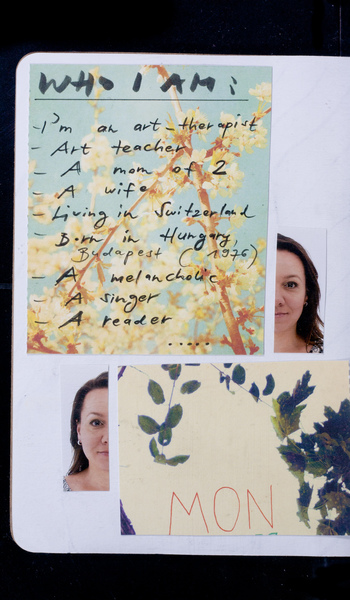 WHO I AM:
- I'm an art-therapist
- Art teacher
- A mom of 2
- A wife
- Living in Switzerland
- Born in Hungary,
Budapest (1976)
- A melancholic
- A singer
- A reader
.....
MON